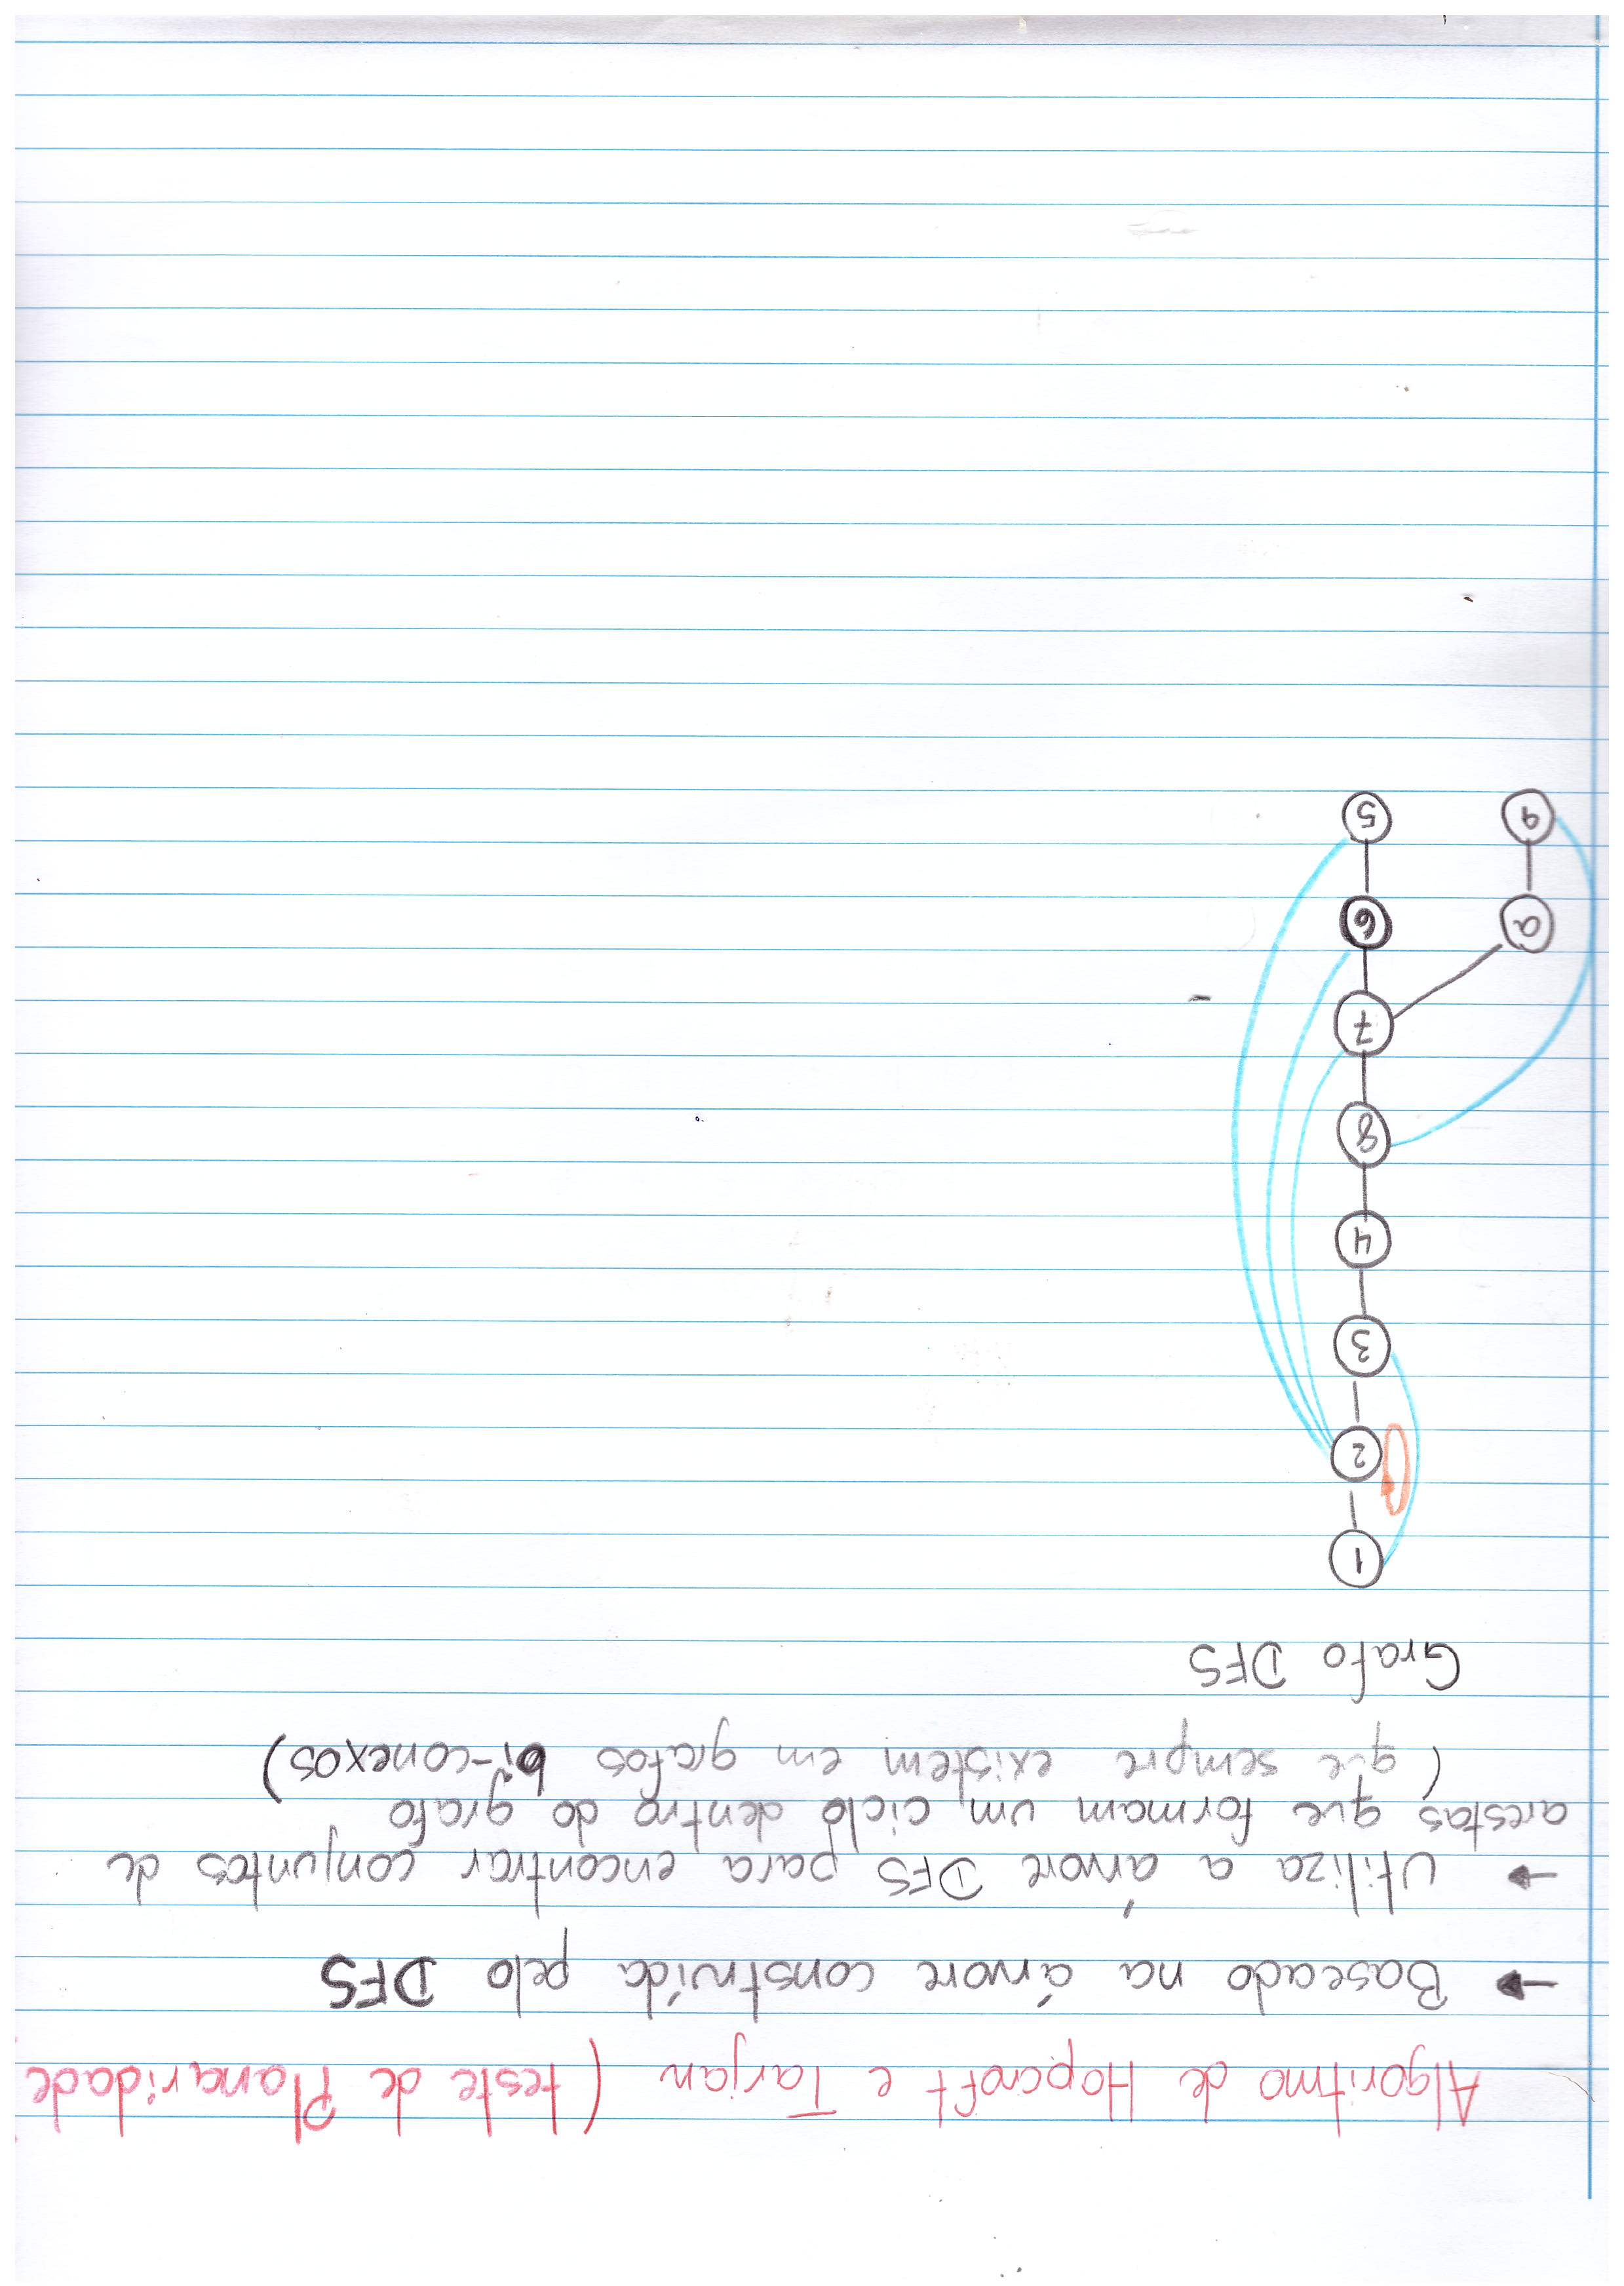 Algoritmo de Hopcroft e Tarjan (teste de Planaridade)
→ Baseado na árvore construída pelo DFS
→ Utiliza a árvore DFS para encontrar conjuntos de
arestas que formam um ciclo dentro do grafo
(que sempre existem em grafos bi-conexos)
Grafo DFS
1
2
3
4
8
7
a 6
9 5